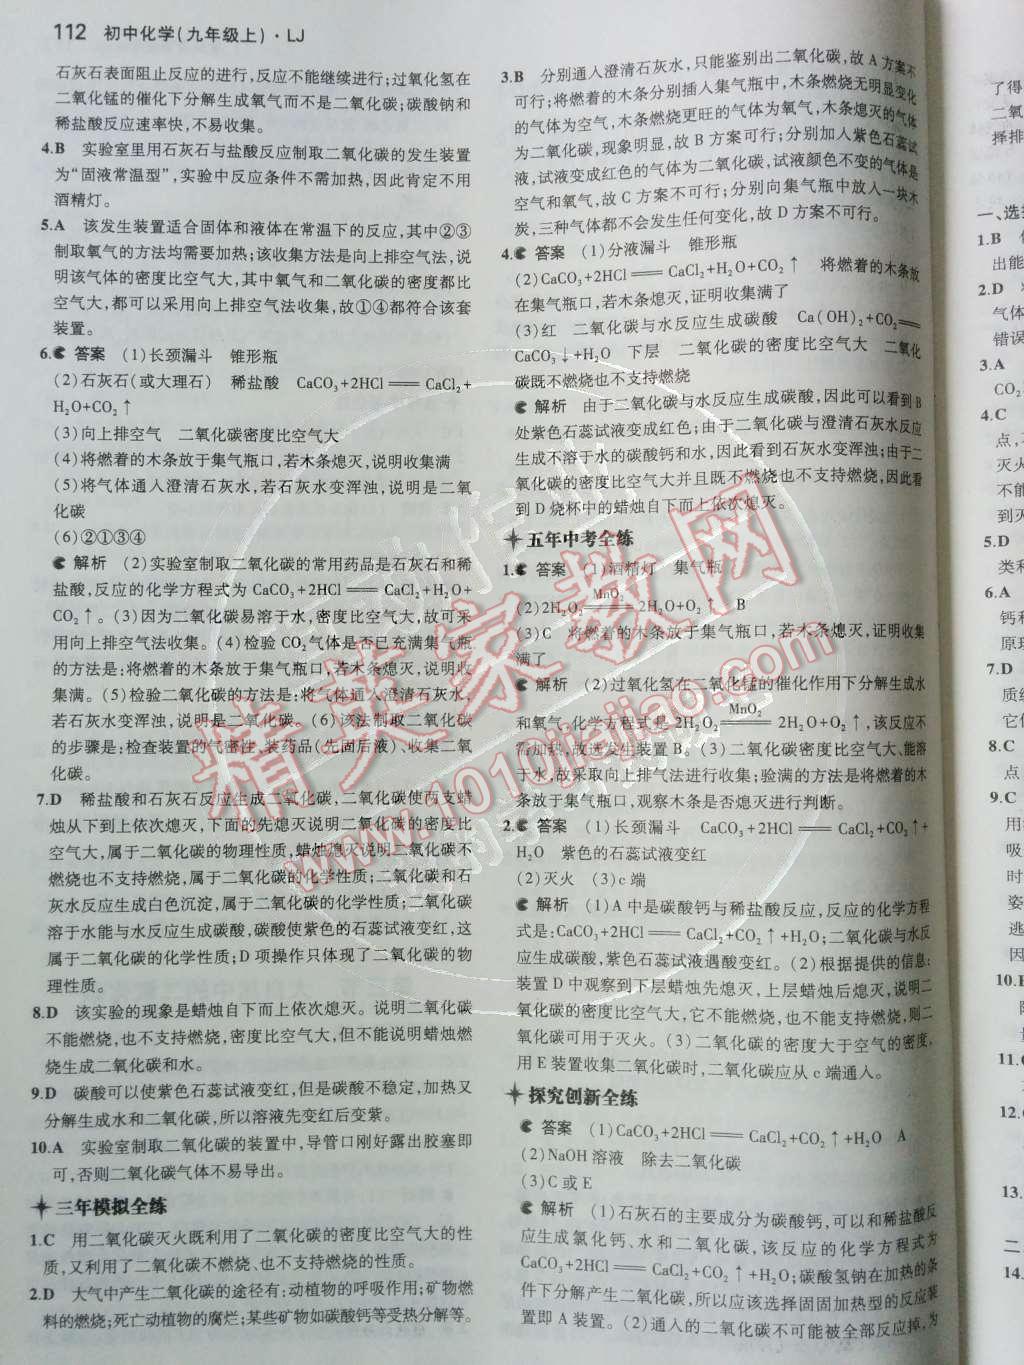 112 初中化学(九年级上)·LJ
石灰石表面阻止反应的进行,反应不能继续进行;过氧化氢在
二氧化锰的催化下分解生成氧气而不是二氧化碳;碳酸钠和
稀盐酸反应速率快,不易收集。
4.B 实验室里用石灰石与盐酸反应制取二氧化碳的发生装置
为“固液常温型”,实验中反应条件不需加热,因此肯定不用
酒精灯。
5.A 该发生装置适合固体和液体在常温下的反应,其中②③
制取氧气的方法均需要加热;该收集方法是向上排空气法,说
明该气体的密度比空气大,其中氧气和二氧化碳的密度都比
空气大,都可以采用向上排空气法收集,故①④都符合该套
装置。
6. 答案 (1)长颈漏斗 锥形瓶
(2)石灰石(或大理石) 稀盐酸 CaCO₃+2HCl══CaCl₂+
H₂O+CO₂↑
(3)向上排空气 二氧化碳密度比空气大
(4)将燃着的木条放于集气瓶口,若木条熄灭,说明收集满
(5)将气体通入澄清石灰水,若石灰水变浑浊,说明是二氧
化碳
(6)②①③④
解析 (2)实验室制取二氧化碳的常用药品是石灰石和稀
盐酸,反应的化学方程式为 CaCO₃+2HCl══CaCl₂+H₂O+
CO₂↑。(3)因为二氧化碳易溶于水,密度比空气大,故可采
用向上排空气法收集。(4)检验 CO₂气体是否已充满集气瓶
的方法是:将燃着的木条放于集气瓶口,若木条熄灭,说明收
集满。(5)检验二氧化碳的方法是:将气体通入澄清石灰水,
若石灰水变浑浊,说明是二氧化碳。(6)该法制取二氧化碳
的步骤是:检查装置的气密性、装药品(先固后液)、收集二氧
化碳。
7.D 稀盐酸和石灰石反应生成二氧化碳,二氧化碳使两支蜡
烛从下到上依次熄灭,下面的先熄灭说明二氧化碳的密度比
空气大,属于二氧化碳的物理性质,蜡烛熄灭说明二氧化碳不
燃烧也不支持燃烧,属于二氧化碳的化学性质;二氧化碳和石
灰水反应生成白色沉淀,属于二氧化碳的化学性质;二氧化碳
溶于水能与水反应生成碳酸,碳酸使紫色的石蕊试液变红,这
属于二氧化碳的化学性质;D 项操作只体现了二氧化碳的物
理性质。
8.D 该实验的现象是蜡烛自下而上依次熄灭。说明二氧化碳
不能燃烧,也不支持燃烧,密度比空气大,但不能说明蜡烛燃
烧生成二氧化碳和水。
9.D 碳酸可以使紫色石蕊试液变红,但是碳酸不稳定,加热又
分解生成水和二氧化碳,所以溶液先变红后变紫。
10.A 实验室制取二氧化碳的装置中,导管口刚好露出胶塞即
可,否则二氧化碳气体不易导出。
三年模拟全练
1.C 用二氧化碳灭火既利用了二氧化碳的密度比空气大的性
质,又利用了二氧化碳不燃烧、也不支持燃烧的性质。
2.D 大气中产生二氧化碳的途径有:动植物的呼吸作用;矿物燃
料的燃烧;死亡动植物的腐烂;某些矿物如碳酸钙等受热分解等。
3.B 分别通入澄清石灰水,只能鉴别出二氧化碳,故 A 方案不
可行;将燃着的木条分别插入集气瓶中,木条燃烧无明显变化
的气体为空气,木条燃烧更旺的气体为氧气,木条熄灭的气体
为二氧化碳,现象明显,故 B 方案可行;分别加入紫色石蕊试
液,试液变成红色的气体为二氧化碳,试液颜色不变的气体是
空气和氧气,故 C 方案不可行;分别向集气瓶中放入一块木
炭,三种气体都不会发生任何变化,故 D 方案不可行。
4. 答案 (1)分液漏斗 锥形瓶
(2)CaCO₃+2HCl══CaCl₂+H₂O+CO₂↑ 将燃着的木条放
在集气瓶口,若木条熄灭,证明收集满了
(3)红 二氧化碳与水反应生成碳酸 Ca(OH)₂+CO₂══
CaCO₃↓+H₂O 下层 二氧化碳的密度比空气大 二氧化
碳既不燃烧也不支持燃烧
解析 由于二氧化碳与水反应生成碳酸,因此可以看到 B
处紫色石蕊试液变成红色;由于二氧化碳与澄清石灰水反应
生成不溶于水的碳酸钙和水,因此看到石灰水变浑浊;由于二
氧化碳的密度比空气大并且既不燃烧也不支持燃烧,因此看
到 D 烧杯中的蜡烛自下而上依次熄灭。
五年中考全练
1. 答案 (1)酒精灯 集气瓶
(2)2H₂O₂ ══MnO₂══ 2H₂O+O₂↑ B
(3)C 将燃着的木条放于集气瓶口,若木条熄灭,证明收集
满了
解析 (2)过氧化氢在二氧化锰的催化作用下分解生成水
和氧气,化学方程式是 2H₂O₂ ══MnO₂══ 2H₂O+O₂↑,该反应不
需加热,故选发生装置 B。(3)二氧化碳密度比空气大、能溶
于水,故采取向上排气法进行收集;验满的方法是将燃着的木
条放于集气瓶口,观察木条是否熄灭进行判断。
2. 答案 (1)长颈漏斗 CaCO₃+2HCl══CaCl₂+CO₂↑+
H₂O 紫色的石蕊试液变红
(2)灭火 (3)c 端
解析 (1)A 中是碳酸钙与稀盐酸反应,反应的化学方程
式是:CaCO₃+2HCl══CaCl₂+CO₂↑+H₂O;二氧化碳与水反
应生成碳酸,紫色石蕊试液遇酸变红。(2)根据提供的信息:
装置 D 中观察到下层蜡烛先熄灭,上层蜡烛后熄灭,说明二
氧化碳的密度比空气大,它不能燃烧,也不能支持燃烧,则二
氧化碳可用于灭火。(3)二氧化碳的密度大于空气的密度,
用 E 装置收集二氧化碳时,二氧化碳应从 c 端通入。
探究创新全练
答案 (1)CaCO₃+2HCl══CaCl₂+CO₂↑+H₂O A
(2)NaOH 溶液 除去二氧化碳
(3)C 或 E
解析 (1)石灰石的主要成分为碳酸钙,可以和稀盐酸反
应生成氯化钙、水和二氧化碳,该反应的化学方程式为
CaCO₃+2HCl══CaCl₂+CO₂↑+H₂O;碳酸氢钠在加热的条
件下分解产生二氧化碳,所以应该选择固固加热型的反应装
置即 A 装置。(2)通入的二氧化碳不可能被全部反应掉,为
了得
二氧
择排
一、选择
1.B
出能
2.D
气体
错误
3.A
CO₂
4.C
点,
灭火
不能
到灭
5.D
类和
6.A
钙和
原理
7.D
质纟
它们
8.C
点
9.C
用
吸
时
姿
逃
因
10.
11.C
12.
13.
二
14.
精英家教网
www.1010jiajiao.com